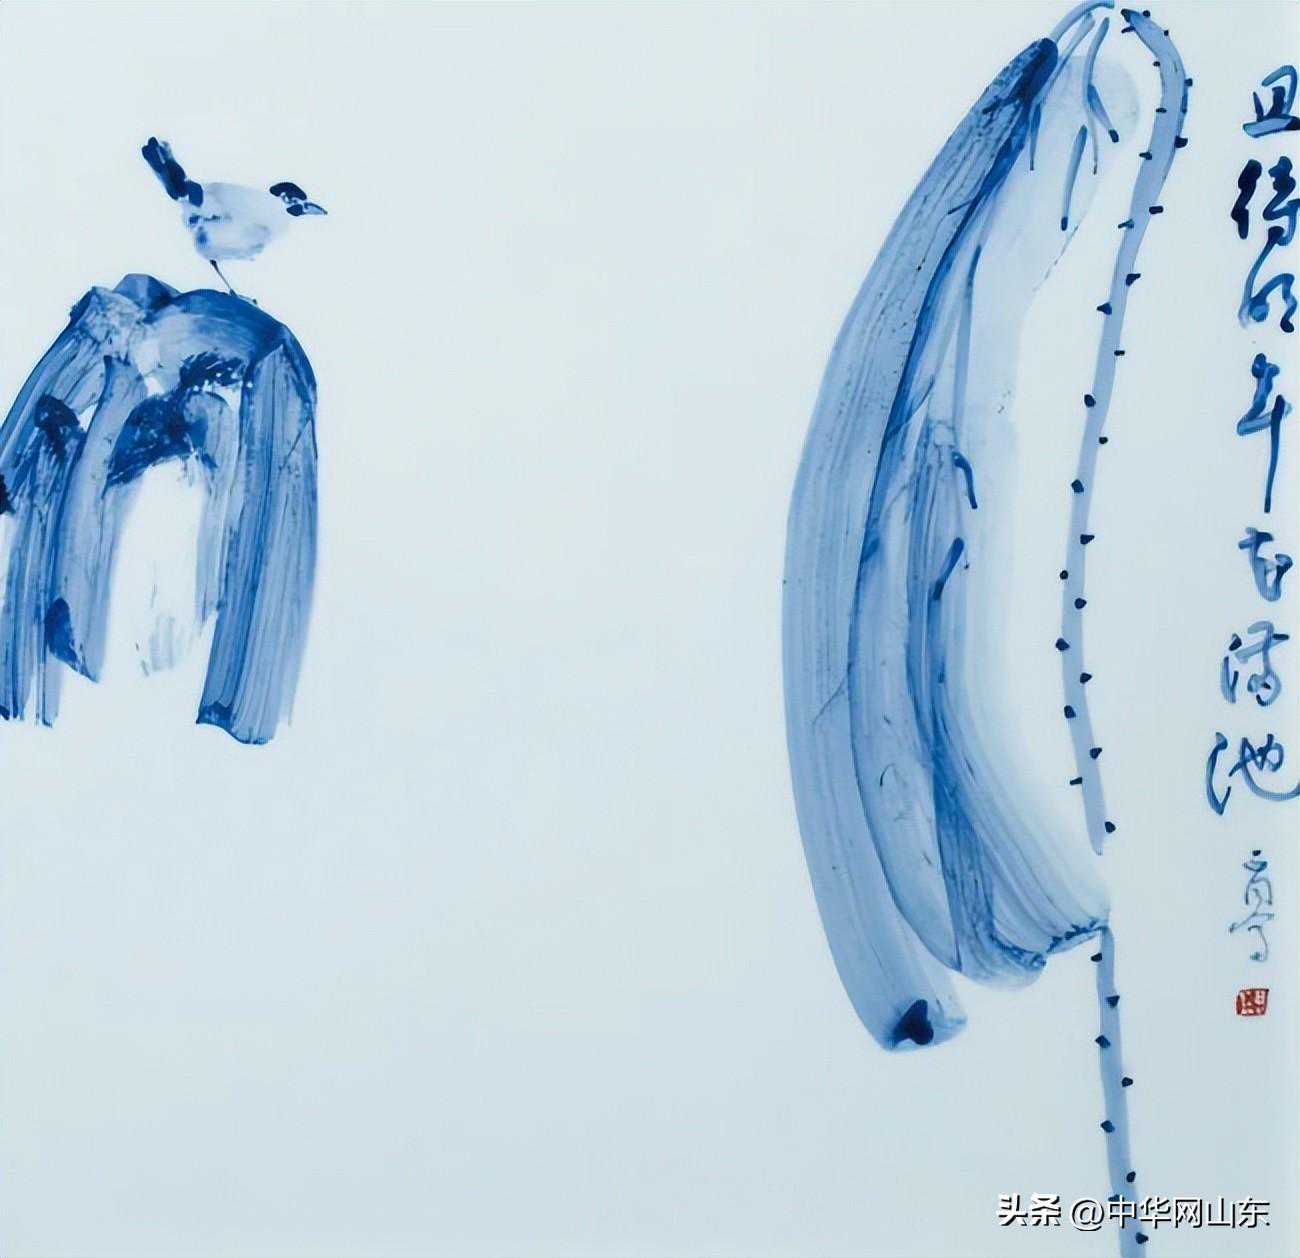 且待明年花满池
头条 @中华网山东